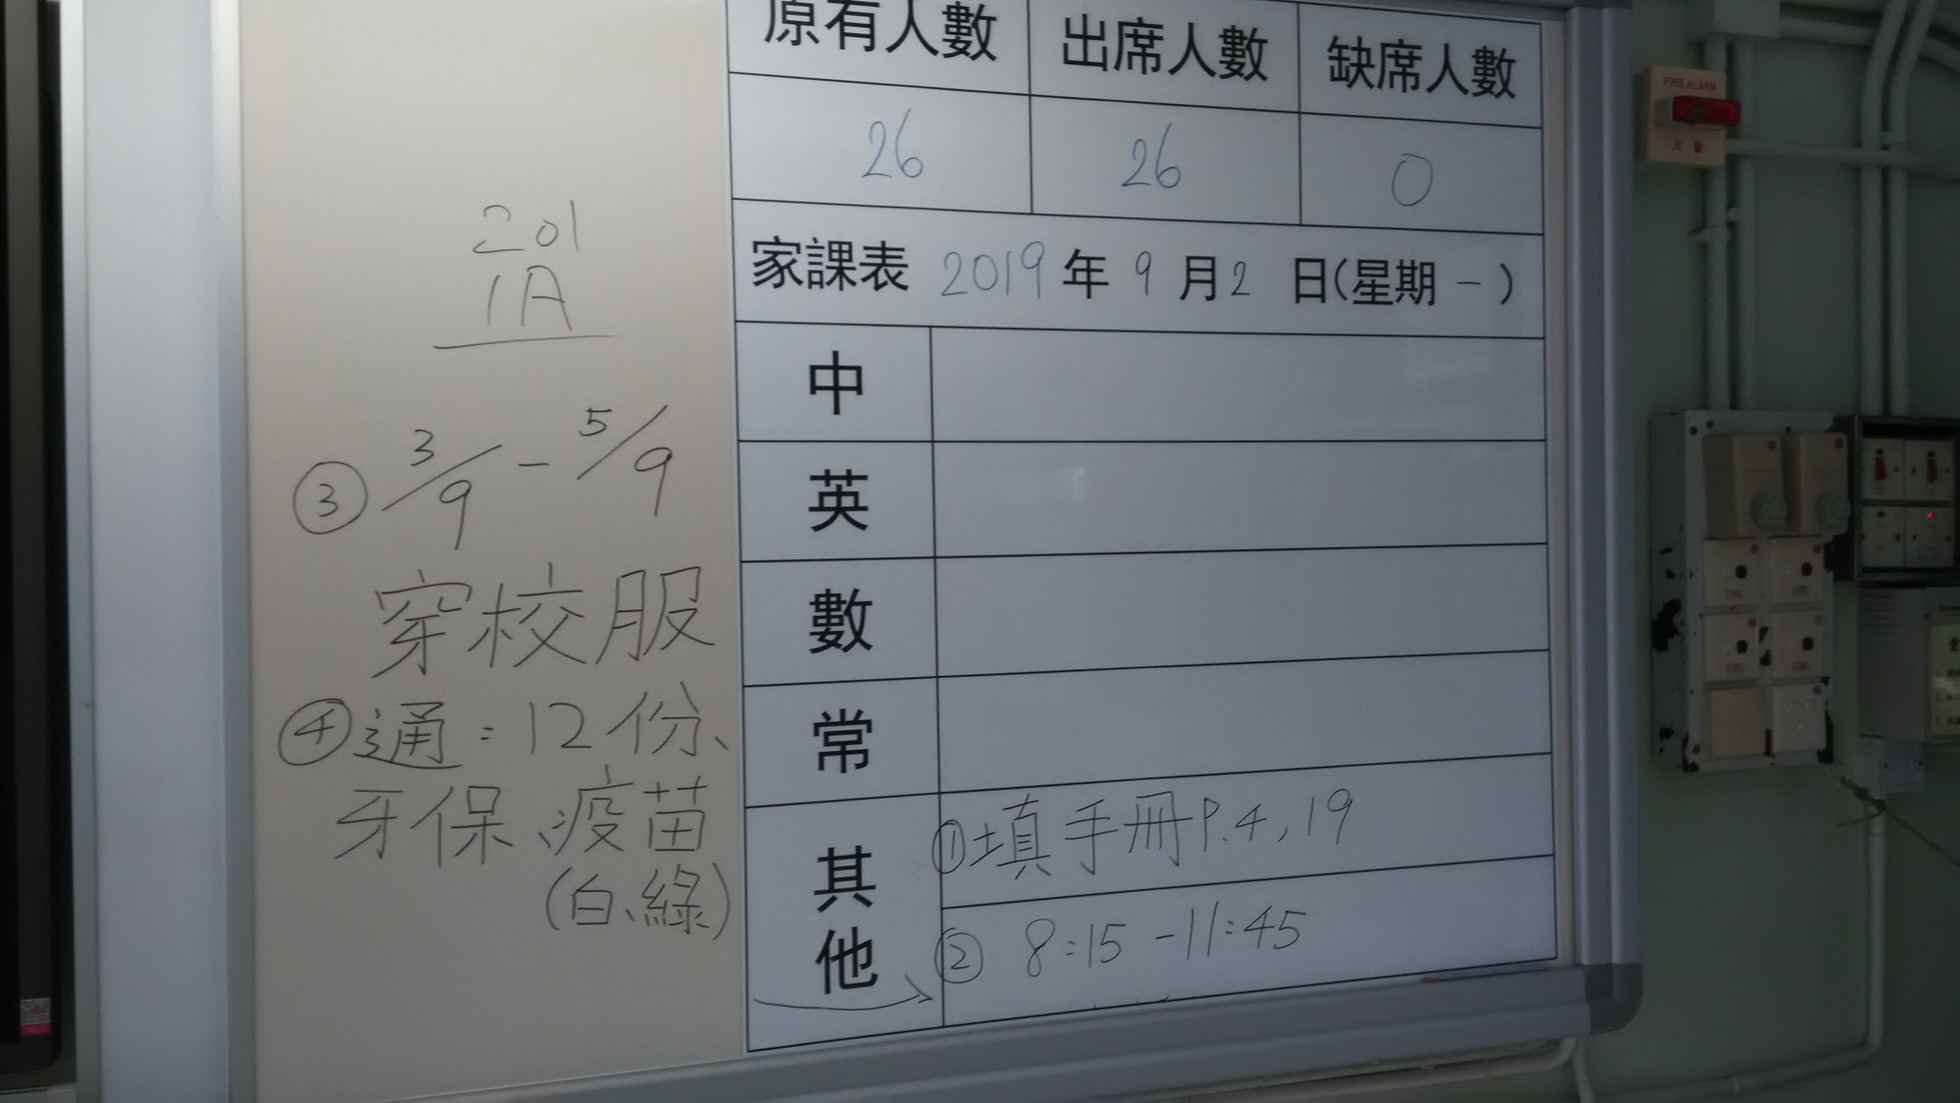 原有人數 出席人數 缺席人數
26 26 0
家課表 2019年9月2日(星期一)
中
英
數
常
其他
①填手冊P.4,19
② 8:15-11:45
201
1A
③ 3/9 - 5/9
穿校服
④通:12份、
牙保、疫苗
(白、綠)
FIRE ALARM
火警